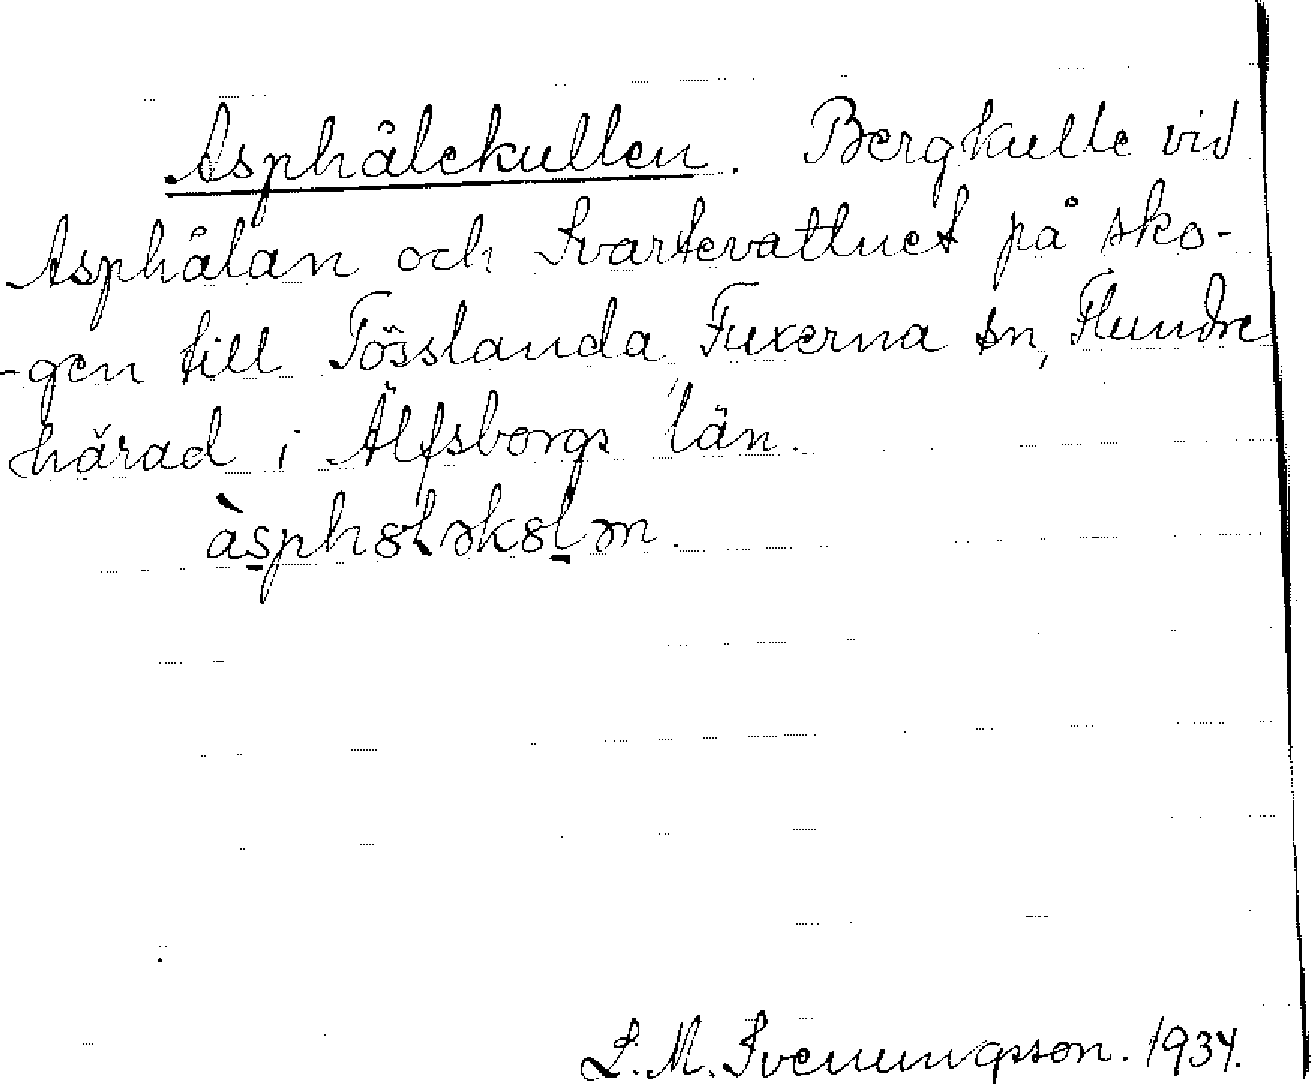 Asphålekullen. Bergkulle vid
Asphålan och Svartevattnet på sko-
-gen till Tösslanda, Fuxerna sn, Flundre
härad i Älfsborgs län.
àsphɵləkɵlən.
L. M. Svenungsson. 1934.